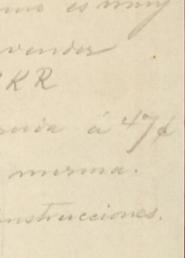 es muy
vender
KR
á 47¢
merma.
instrucciones.